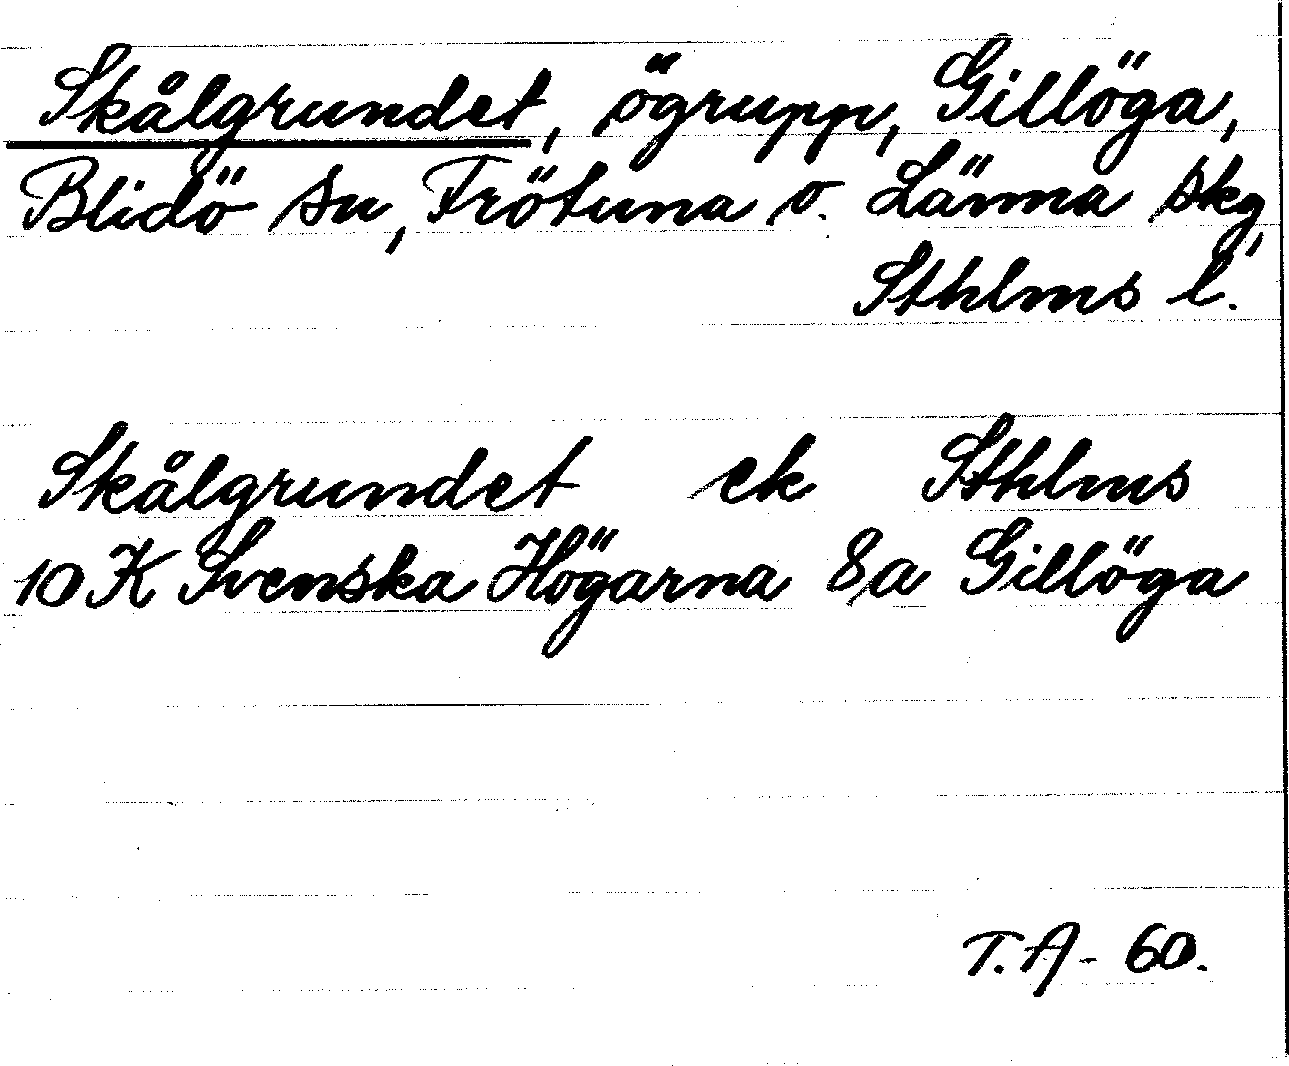 Skålgrundet, ögrupp, Gillöga,
Blidö sn, Frötuna o. Länna skg,
Sthlms l.
Skålgrundet ek Sthlms
10 K Svenska Högarna 8a Gillöga
T.A - 60.